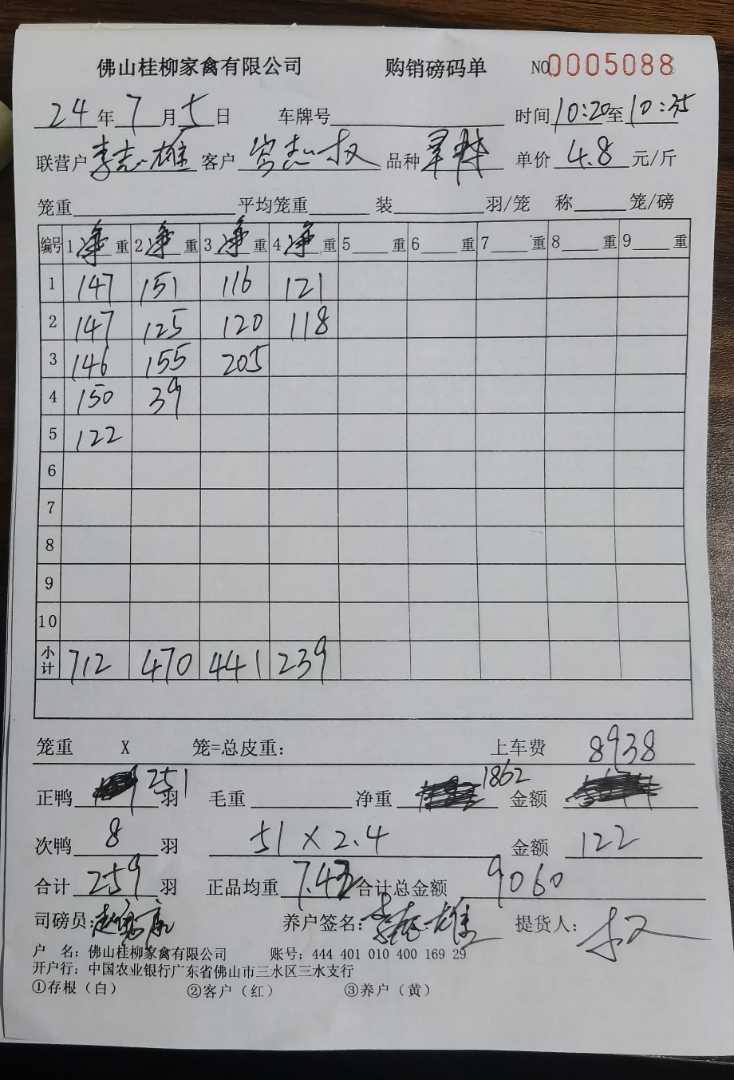 佛山桂柳家禽有限公司 购销磅码单 NO 0005088
24 年 7 月 5 日 车牌号 时间 10:20 至 10:35
联营户 李志雄 客户 品种 单价 4.8 元/斤
笼重 平均笼重 装 羽/笼 称 笼/磅
编号 1 净 重 2 净 重 3 净 重 4 净 重 5 重 6 重 7 重 8 重 9 重
1 147 151 116 121
2 147 125 120 118
3 146 155 205
4 150 39
5 122
6
7
8
9
10
小计 712 470 441 239
笼重 X 笼=总皮重: 上车费 8938
正鸭 251 羽 毛重 净重 1862 金额
次鸭 8 羽 51 × 2.4 金额 122
合计 259 羽 正品均重 7.42 合计总金额 9060
司磅员: 养户签名: 李志雄 提货人:
户 名: 佛山桂柳家禽有限公司 账号: 444 401 010 400 169 29
开户行: 中国农业银行广东省佛山市三水区三水支行
①存根（白） ②客户（红） ③养户（黄）